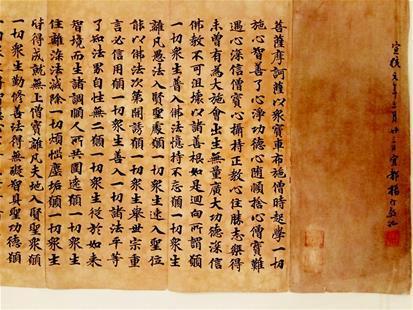 宣統元年三月廿三日宜都楊守敬記
菩薩摩訶薩以衆寶車布施僧時起學一切
施心智善了心淨功德心隨順捨心僧寶難
遇心深信僧寶心攝持正教心住勝志樂得
未曾有為大施會出生無量廣大功德深信
佛教不可沮壞以諸善根如是迴向所謂願
一切衆生普入佛法憶持不忘願一切衆生
離凡愚法入賢聖處願一切衆生速入聖位
能以佛法次第開誘願一切衆生舉世宗重
言必信用願一切衆生善入一切諸法平等
了知法界自性無二願一切衆生從於如來
智境而生諸調順人所共圍遶願一切衆生
住離染法滅除一切煩惱塵垢願一切衆生
皆得成就無上僧寶離凡夫地入賢聖衆願
一切衆生勤修善法得無礙智具聖功德願